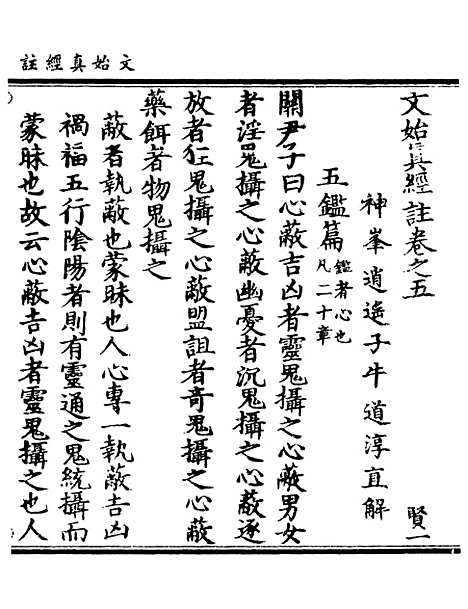 文始真經註
文始真經註卷之五　賢一
神峯逍遙子牛道淳直解
五鑑篇 鑑者心也
凡二十章
關尹子曰心蔽吉凶者靈鬼攝之心蔽男女
者淫鬼攝之心蔽幽憂者沉鬼攝之心蔽逐
放者狂鬼攝之心蔽盟詛者奇鬼攝之心蔽
藥餌者物鬼攝之
蔽者執蔽也蒙昧也人心專一執蔽吉凶
禍福五行陰陽者則有靈通之鬼統攝而
蒙昧也故云心蔽吉凶者靈鬼攝之也人